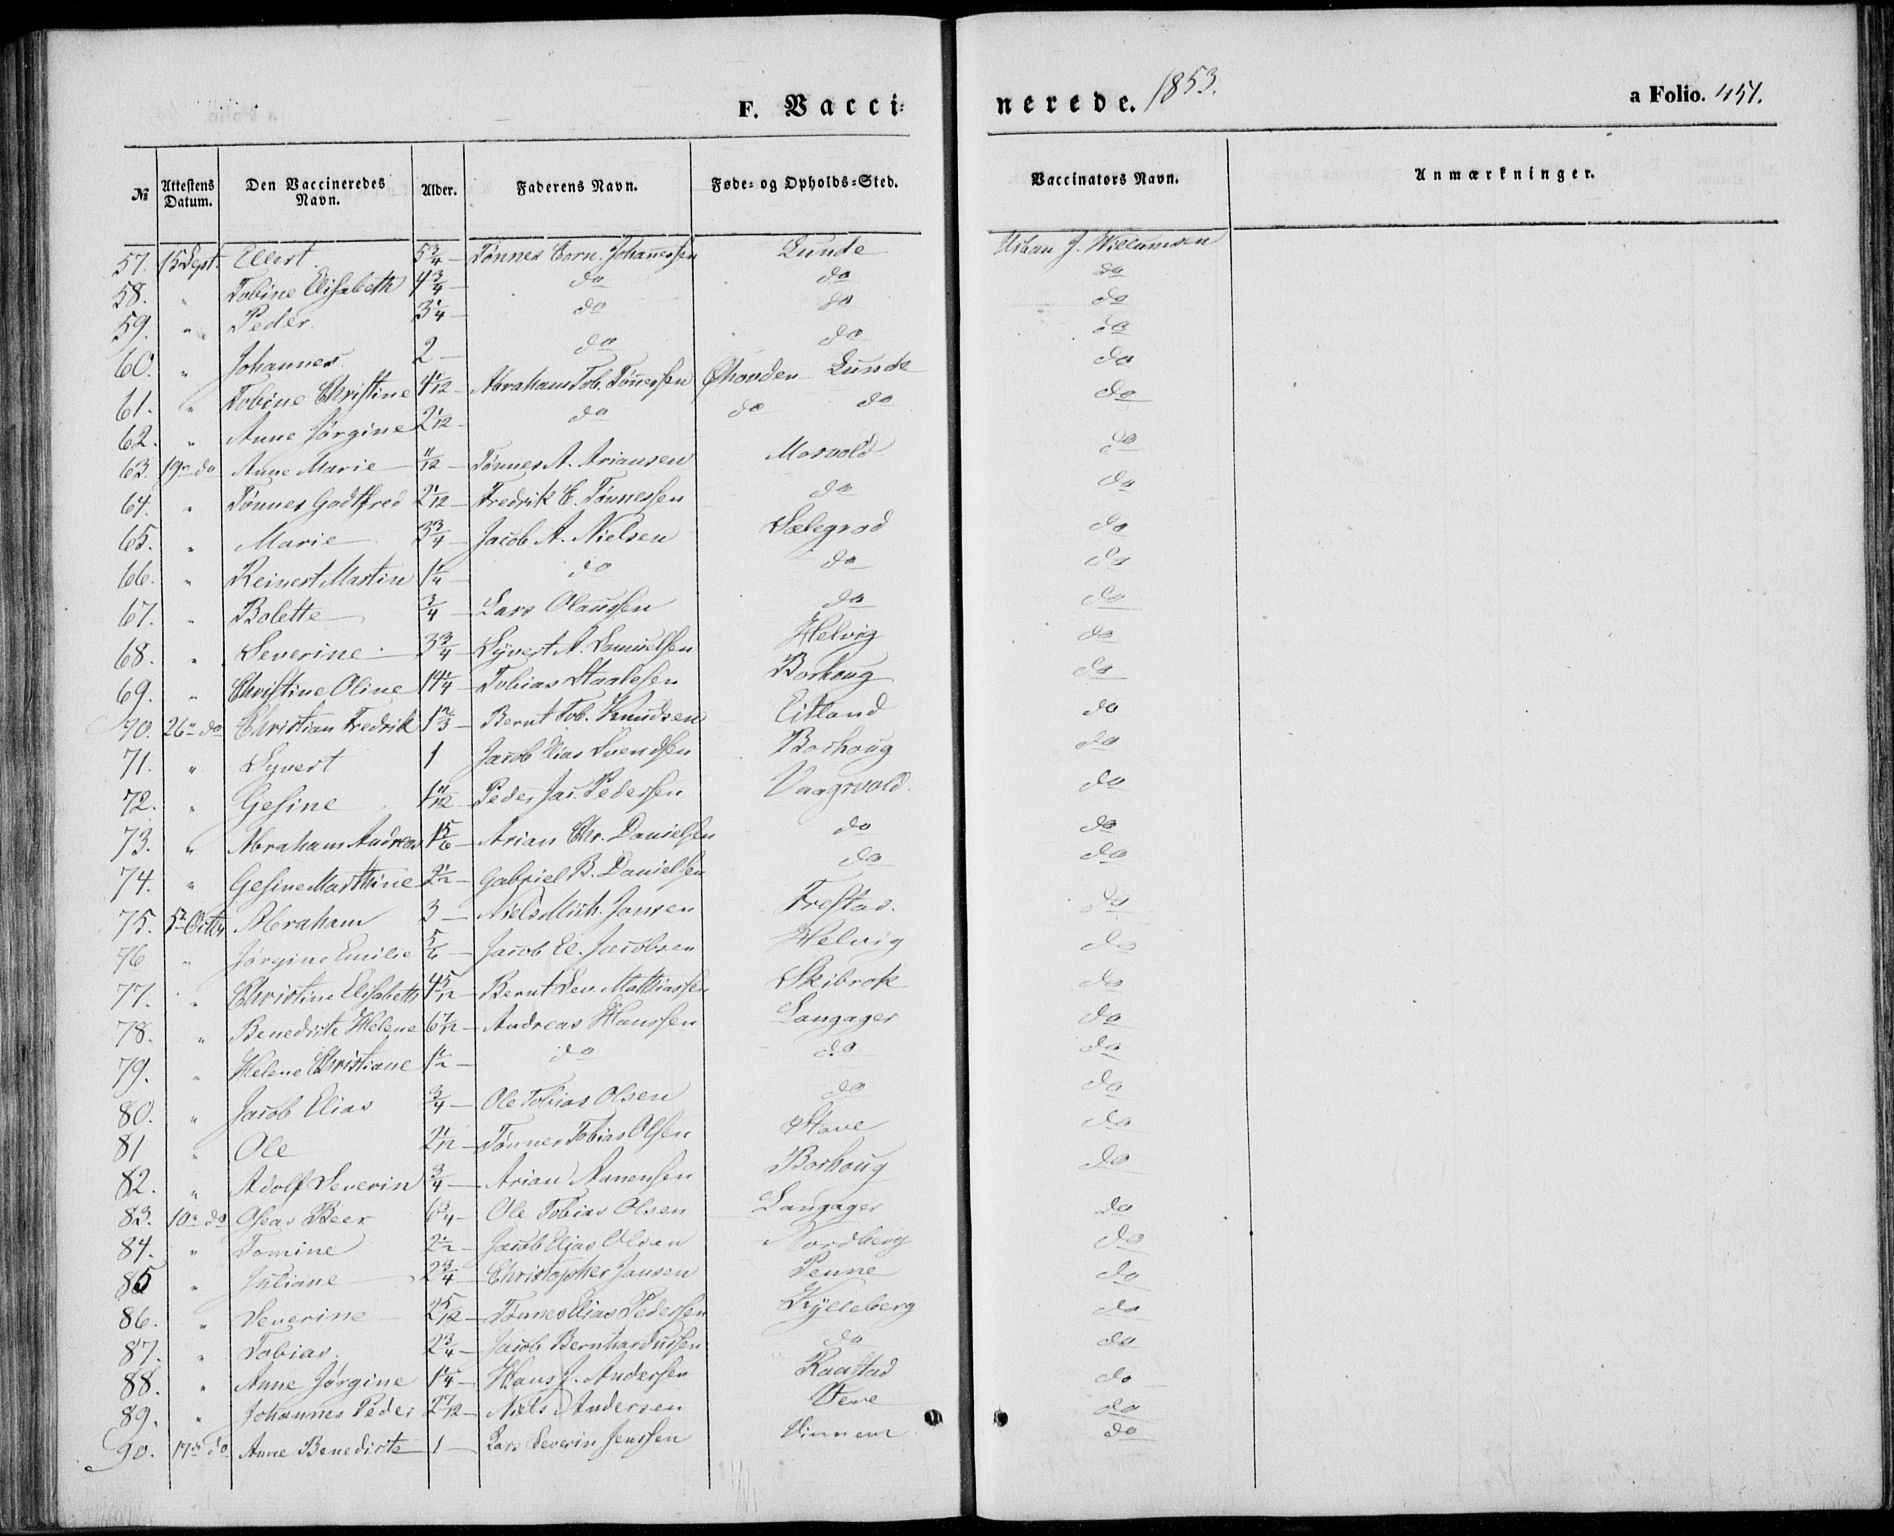 F. Vacci-
nerede. 1853.
a Folio. 451.
№ Attestens Datum. Den Vaccineredes Navn. Alder. Faderens Navn. Føde- og Opholds-Sted. Vaccinators Navn. Anmærkninger.
57. 15 Sept. Ellert 5 3/4 Tønnes Corn. Johannessen Lunde Urban J. Willumsen
58. " Tobine Elisabeth 4 3/4 do do do
59. " Peder 3 1/4 do do do
60. " Johannes 2 do do do
61. " Tobine Christine 4 1/12 Abraham Tob. Tønnessen Øhovden Lunde do
62. " Anne Jørgine 2 1/12 do do do do
63. 19 do Anne Marie 11/12 Tønnes A. Ariansen Morvold do
64. " Tønnes Godtfred 2 1/12 Fredrik C. Tønnessen do do
65. " Marie 3 3/4 Jacob A. Nielsen Sælegrod do
66. " Reinert Martin 1 1/4 do do do
67. " Bolette 3/4 Lars Olaussen do do
68. " Severine 3 3/4 Syvert A. Samuelsen Helvig do
69. " Christine Oline 14 1/4 Tobias Staalesen Borhoug do
70. 26 do Christian Fredrik 1 2/3 Bernt Tob. Knudsen Eitland do
71. " Syvert 1 Jacob Elias Svendsen Borhoug do
72. " Gesine 1 11/12 Peder Jac. Pedersen Vaagsvold. do
73. " Abraham Andreas 1 5/6 Arian Chr. Danielsen do do
74. " Gesine Marthine 2 1/2 Gabriel B. Danielsen do do
75. 5 Octbr Abraham 3 Niels Mich. Jansen Frestad. do
76 " Jørgine Emilie 5/6 Jacob El. Jacobsen Helvig do
77. " Christine Elisabeth 4 5/12 Bernt Sev. Mathiassen Skibrok do
78. " Benedicte Helene 6 7/12 Andreas Hanssen Langager do
79. " Helene Christiane 1 1/2 do do do
80. " Jacob Elias 3/4 Ole Tobias Olsen do do
81 " Ole 2 1/12 Tønnes Tobias Olsen Stave do
82. " Adolf Severin 3/4 Arian Annensen Borhoug do
83. 10 do Oseas Beer 6 3/4 Ole Tobias Olsen Langager do
84. " Tomine 2 1/2 Jacob Elias Olsen Nordberg do
85 " Juliane 2 3/4 Christopher Jansen Penne do
86. " Severine 2 5/12 Tønnes Elias Pedersen Kylleberg do
87. " Tobias. 2 3/4 Jacob Bernhardussen do do
88. " Anne Jørgine 1 1/4 Hans J. Andersen Raastad do
89. " Johannes Peder 2 7/12 Niels Andersen Vere do
90. 17 do Anne Benedicte 1 Lars Severin Jenssen do